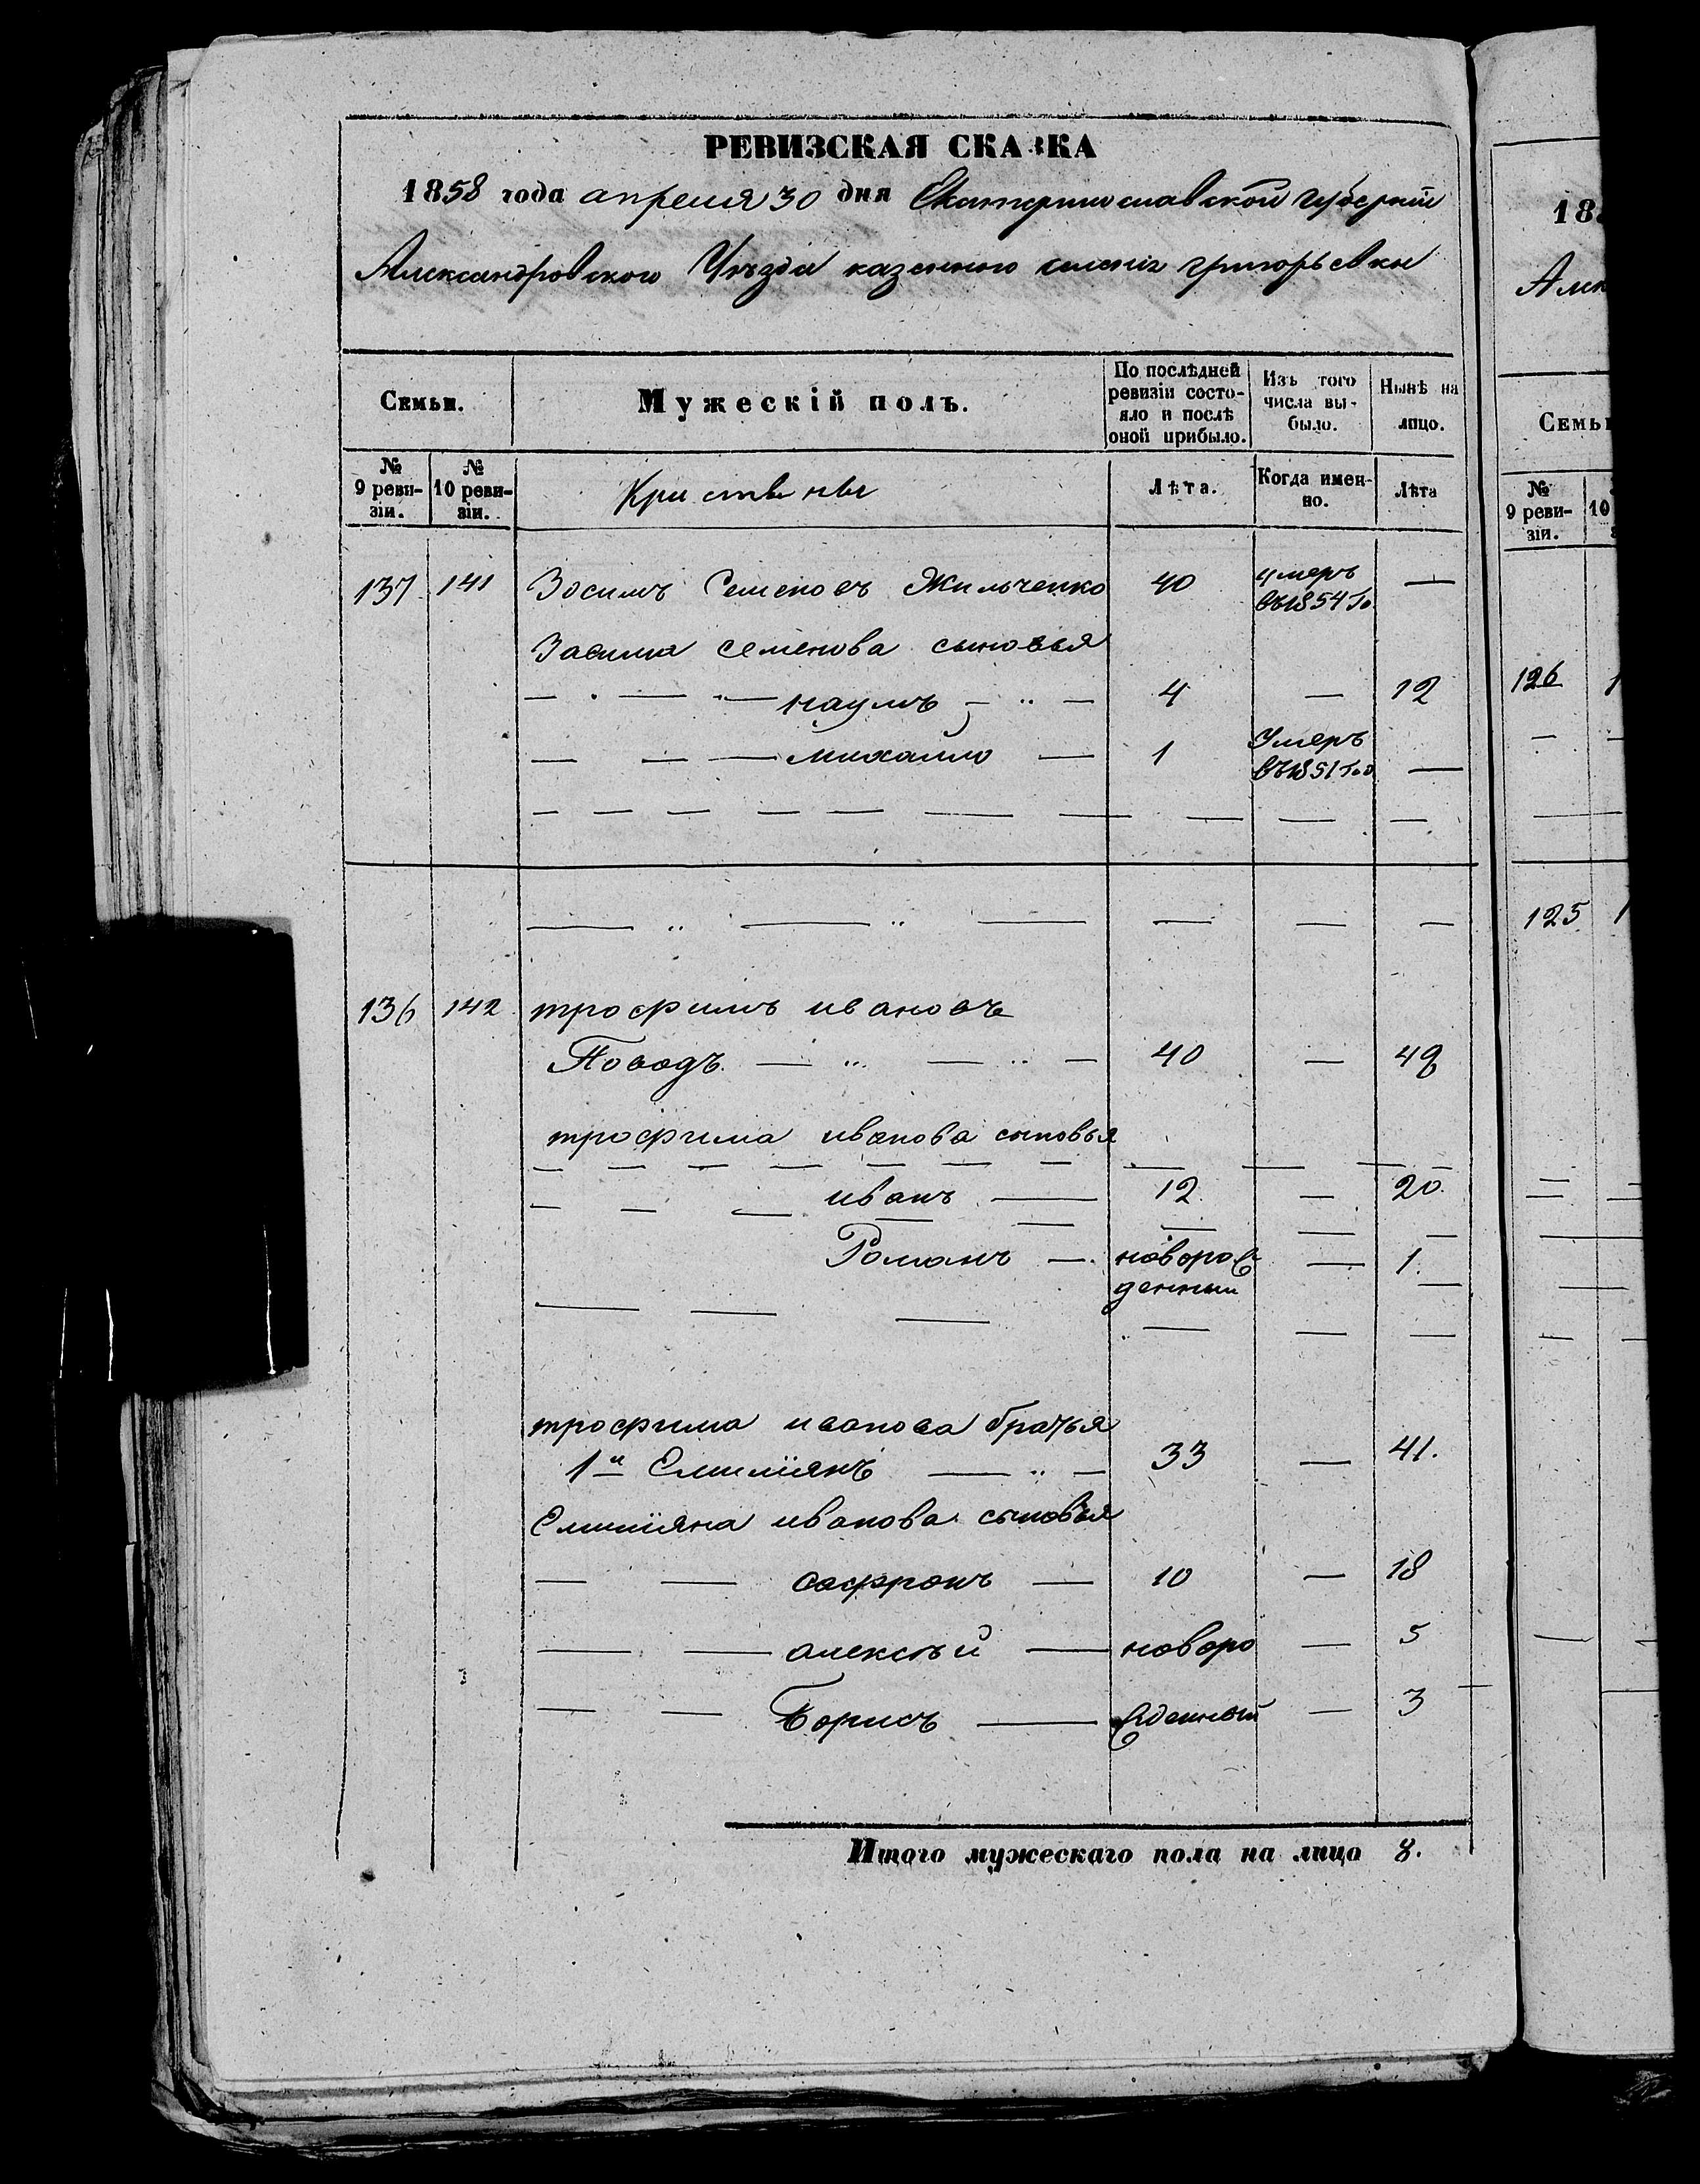 РЕВИЗСКАЯ СКАЗКА
1858 года апреля 30 дня Екатеринославской губерніи
Александровского Уѣзда казенного селенія григорьевки
Семьи.
Мужескій полъ.
По послѣдней ревизіи состо-яло и послѣ оной прибыло.
Изъ того числа вы-было.
Нынѣ на лицо.
№ 9 реви-зіи.
№ 10 реви-зіи.
Лѣта.
Когда имен-но.
Лѣта
137 141 Зосимъ Семеновъ Жильченко 40 умеръ въ 1854 го —
Засима семенова сыновья
наумъ 4 — 12
михайло 1 Умеръ въ 1851 год —
136 142 трофимъ ивановъ
Поводъ 40 — 48
трофима иванова сыновья
иванъ 12 — 20.
Романъ — новорож
денный — 1.
трофима иванова братья
1й Емилиянъ 33 — 41.
Емилияна иванова сыновья
софронъ — 10 — 18
алексѣй — новоро — 5
Борисъ — жденный — 3
Итого мужескаго пола на лицо 8.
18
Але
Семьи
№ 9 реви-зіи.
10
126
125